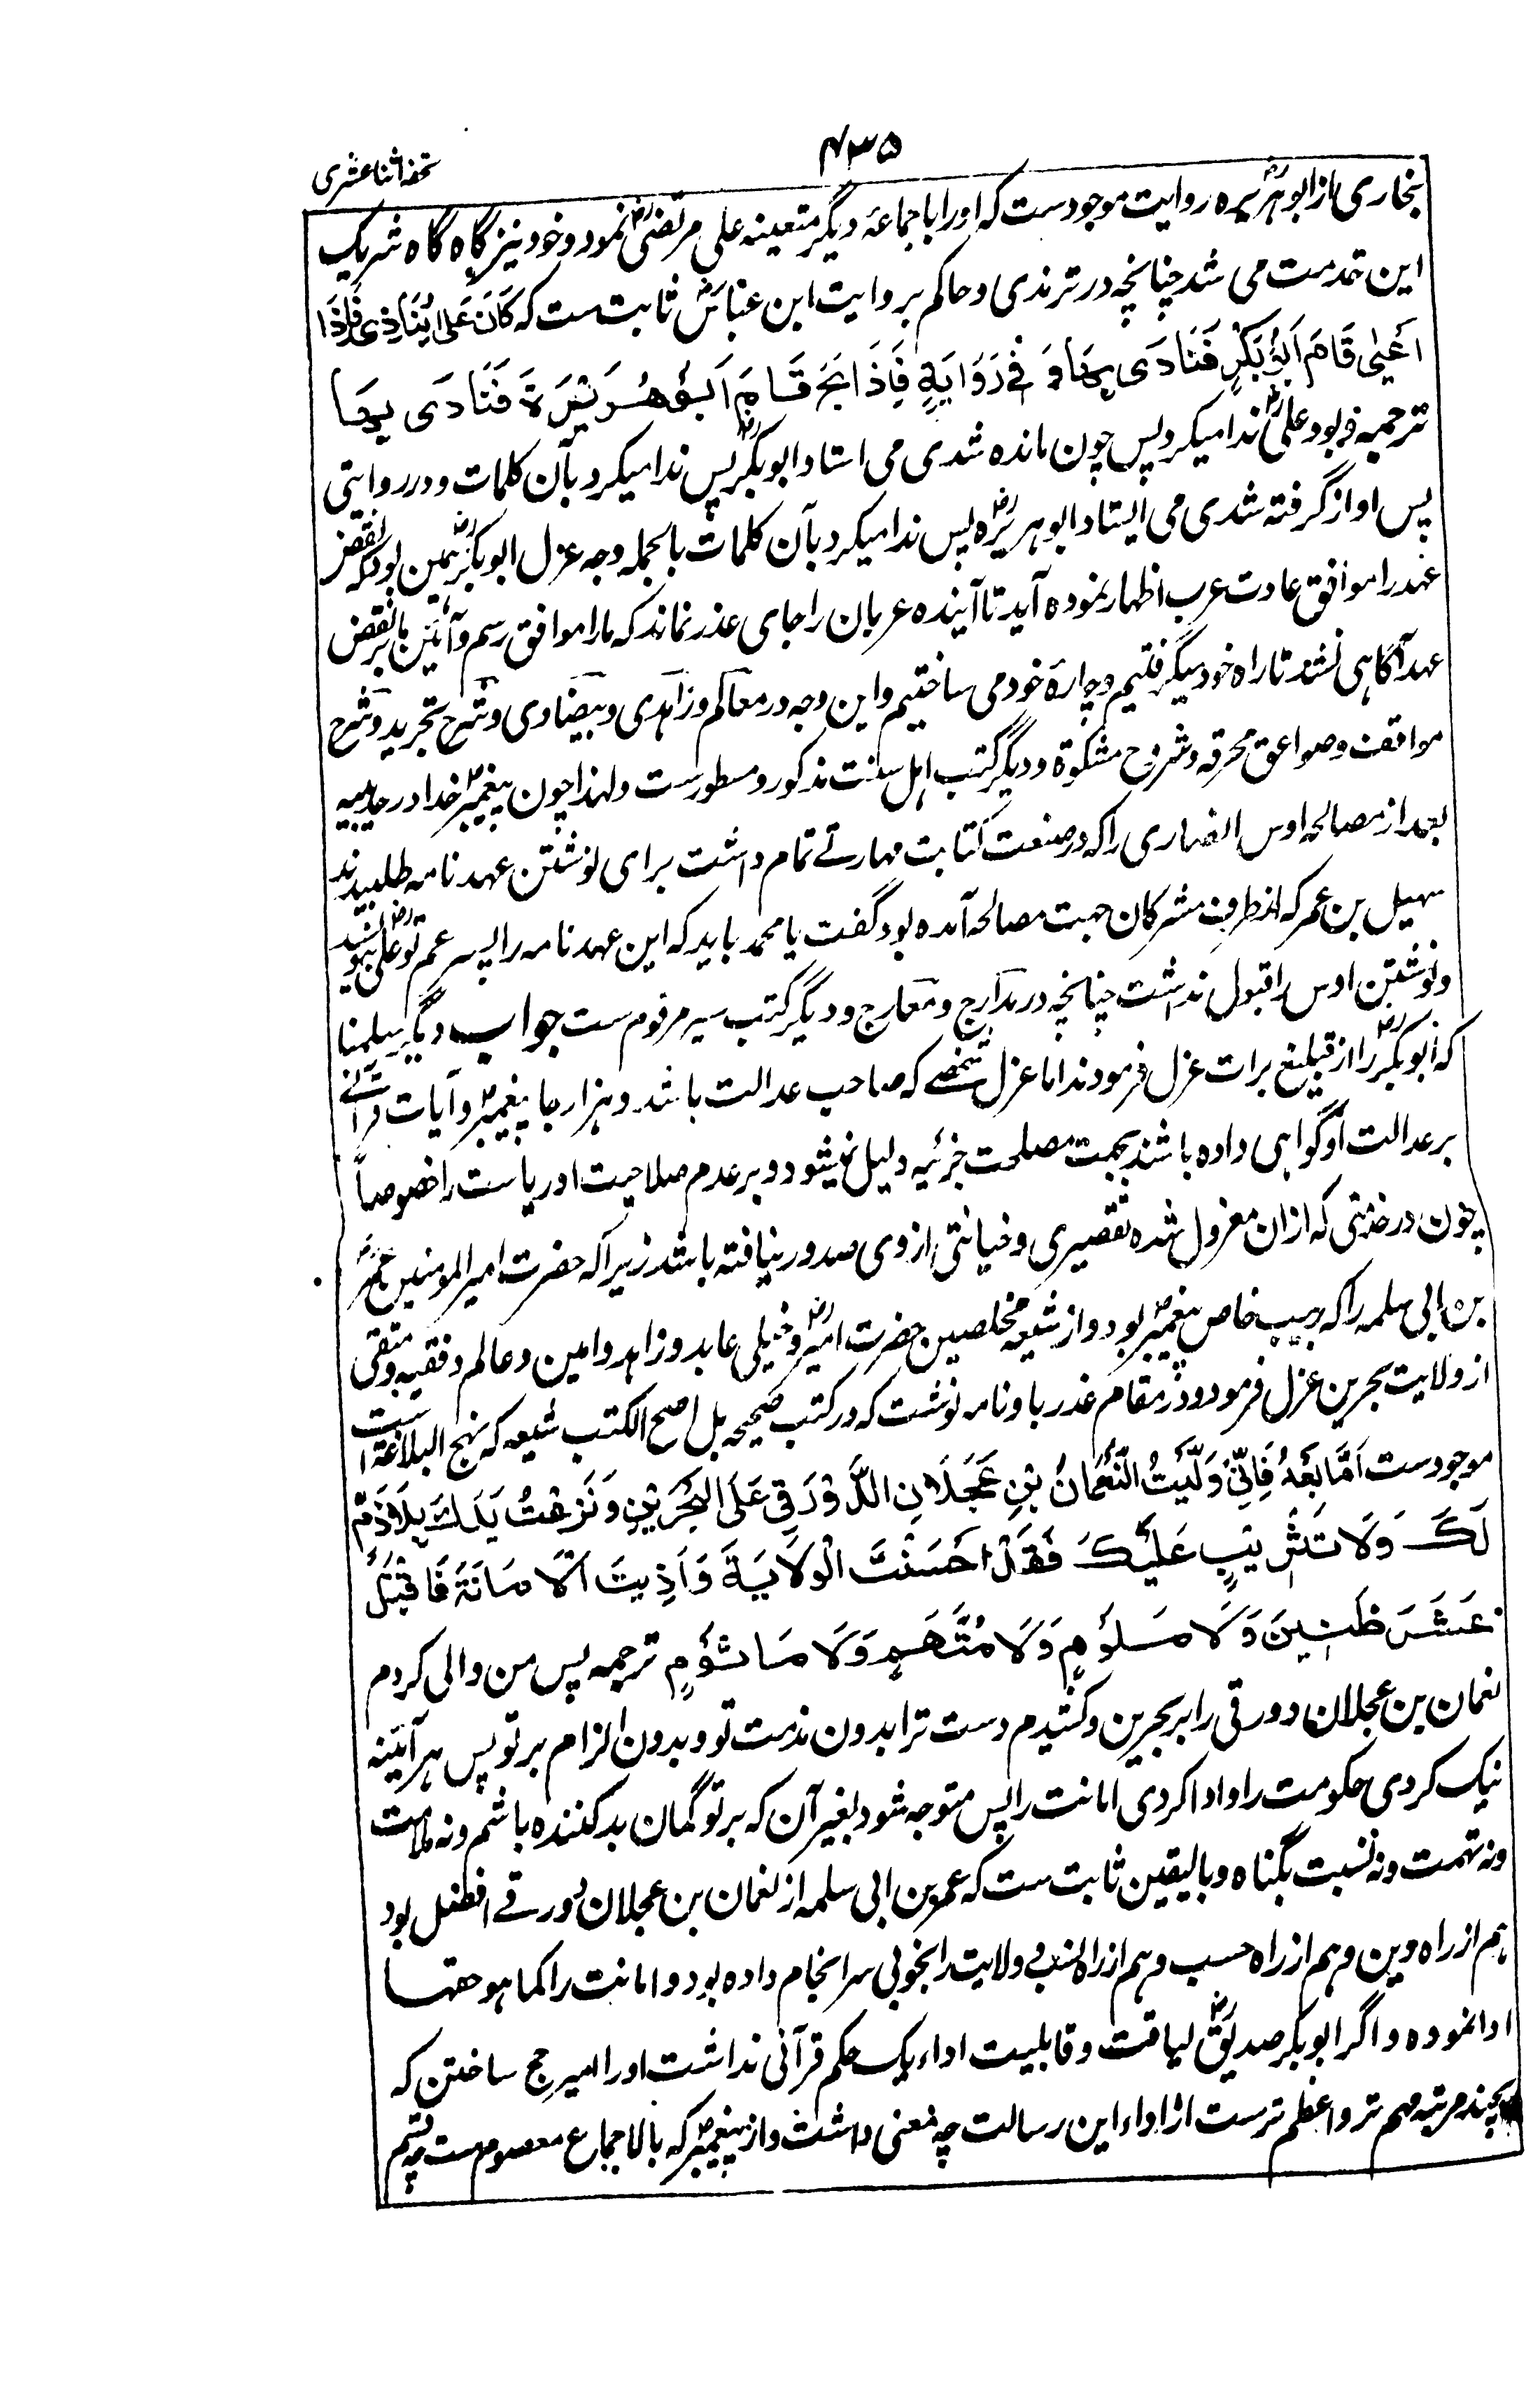 ۴۳۵
تحفه اثنا عشری
بخاری از ابو هریره روایت موجودست که اورا با جماعهٔ دیگر متعینه علی مرتضیؓ نمود و خود نیز گاه گاه شریک
این خدمت می شد چنانچه در ترمذی و حاکم بروایت ابن عباسؓ ثابت ست که کَانَ عَلِیٌّ یُنَادِی فَاِذَا
اَعْیٰی قَامَ اَبُوْ بَکْرٍ فَنَادٰی بِهَا وَ فِیْ رِوَایَةٍ فَاِذَا بَحَّ قَامَ اَبُوْ هُرَیْرَةَ فَنَادٰی بِهَا
ترجمه و بود علیؓ ندا میکرد پس چون مانده شدی می استاد ابوبکرؓ پس ندا میکرد بآن کلمات و در روایتی
پس آواز گرفته شدی می ایستاد ابو هریرهؓ پس ندا میکرد بآن کلمات بالجمله وجه عزل ابوبکرؓ همین بود که نقض
عهد را موافق عادت عرب اظهار نموده آید تا آینده عربان را جای عذر نماند که مارا موافق رسم و آئین ما بر نقض
عهد آگاهی نشد تا راه خود میگرفتیم و چارهٔ خود می ساختیم و این وجه در معالم و زاهدی و بیضاوی و شرح تجرید و شرح
مواقف و صواعق محرقه و شروح مشکوة و دیگر کتب اهل سنت مذکور و مسطورست و لهذا چون پیغمبرؐ خدا در حدیبیه
بعد از مصالحه اوس انصاری را که در صنعت کتابت مهارتے تمام داشت برای نوشتن عهد نامه طلبیدند
سهیل بن عمر که از طرف مشرکان جهت مصالحه آمده بود گفت یا محمد باید که این عهد نامه را پسر عم تو علیؓ بنویسد
و نوشتن اوس را قبول نداشت چنانچه در مدارج و معارج و دیگر کتب سیر مرقوم ست جواب دیگر سلمنا
که ابوبکرؓ را از تبلیغ برات عزل فرمودند اما عزل شخصے که صاحب عدالت باشد و هزار جا پیغمبرؐ و آیات قرآنے
بر عدالت او گواهی داده باشند بجهت مصلحت جزئیه دلیل نمیشود و بر عدم صلاحیت او ریاست را خصوصاً
چون در خدمتی که ازان معزول شده تقصیری و خیانتی از وی صدور نیافته باشد زیرا که حضرت امیر المومنین عمر
بن ابی سلمه را که ربیب خاص پیغمبرؐ بود و از شیعه مخلصین حضرت امیرؓ و خیلی عابد و زاهد و امین و عالم و فقیه و متقی
از ولایت بحرین عزل فرمود و در مقام عذر باو نامه نوشت که در کتب صحیحه بل اصح الکتب شیعه که نهج البلاغة است
موجودست اَمَّا بَعْدُ فَاِنِّیْ وَلَّیْتُ النُّعْمَانَ بْنِ عَجْلَانِ الدَّوْرَقِیِّ عَلَی الْبَحْرَیْنِ وَ نَزَعْتُ یَدَکَ بِلَا ذَمٍّ
لَکَ وَلَا تَثْرِیْبٍ عَلَیْکَ فَقَدْ اَحْسَنْتَ الْوِلَایَةَ وَ اَدَّیْتَ الْاَمَانَةَ فَاَقْبِلْ
غَیْرَ ظَنِیْنٍ وَلَا مَلُوْمٍ وَلَا مُتَّهَمٍ وَلَا مَاثُوْمٍ ترجمه پس من والی کردم
نعمان بن عجلان دورقی را بر بحرین و کشیدم دست ترا بدون مذمت تو و بدون الزام بر تو پس هر آئینه
نیک کردی حکومت را و ادا کردی امانت را پس متوجه شو بغیر آن که بر تو گمان بد کننده باشم و نه ملامت
و نه تهمت و نه نسبت بگناه و بالیقین ثابت ست که عمر بن ابی سلمه از نعمان بن عجلان دورقے افضل بود
هم از راه دین و هم از راه حسب و هم از راه نسب و ولایت را بخوبی سرانجام داده بود و امانت را کما هو حقها
ادا نموده و اگر ابوبکر صدیقؓ لیاقت و قابلیت اداء یک حکم قرآنی نداشت اورا امیر حج ساختن که
بچند مرتبه مهم تر و اعظم ترست از اداء این رسالت چه معنی داشت و از پیغمبرؐ که بالاجماع معصوم ست چه قسم